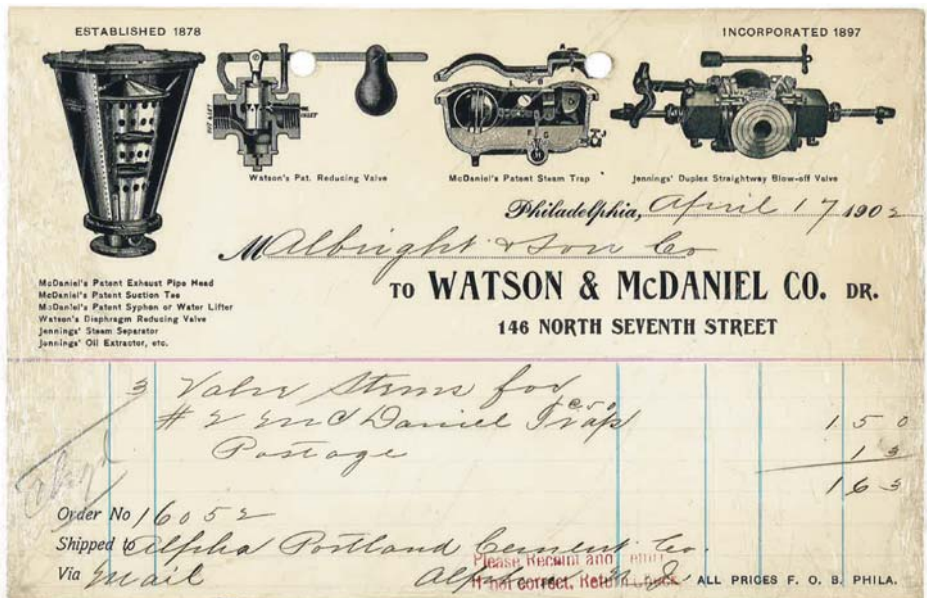 ESTABLISHED 1878
INCORPORATED 1897
OUTLET
INLET
Watson's Pat. Reducing Valve
McDaniel's Patent Steam Trap
Jennings' Duplex Straightway Blow-off Valve
Philadelphia, April 17 1902
M Albright & Son Co
McDaniel's Patent Exhaust Pipe Head
McDaniel's Patent Suction Tee
McDaniel's Patent Syphon or Water Lifter
Watson's Diaphragm Reducing Valve
Jennings' Steam Separator
Jennings' Oil Extractor, etc.
TO WATSON & McDANIEL CO. DR.
146 NORTH SEVENTH STREET
3 Valve Stems for
# 2 McDaniel Trap 1 5 0
Postage 1 3
1 6 3
Order No 16052
Shipped to Alpha Portland Cement Co.
Please Receipt and
Via Mail Alpha N.J. ALL PRICES F. O. B. PHILA.
If not correct, Return